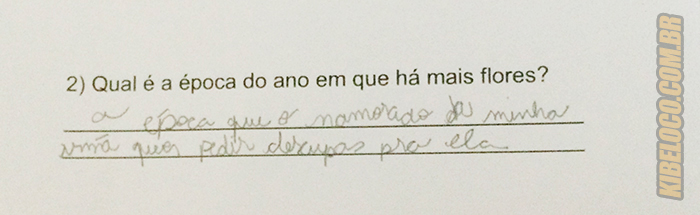 2) Qual é a época do ano em que há mais flores?
a época que o namorado da minha
irmã quer pedir descupas pra ela
KIBELOCO.COM.BR